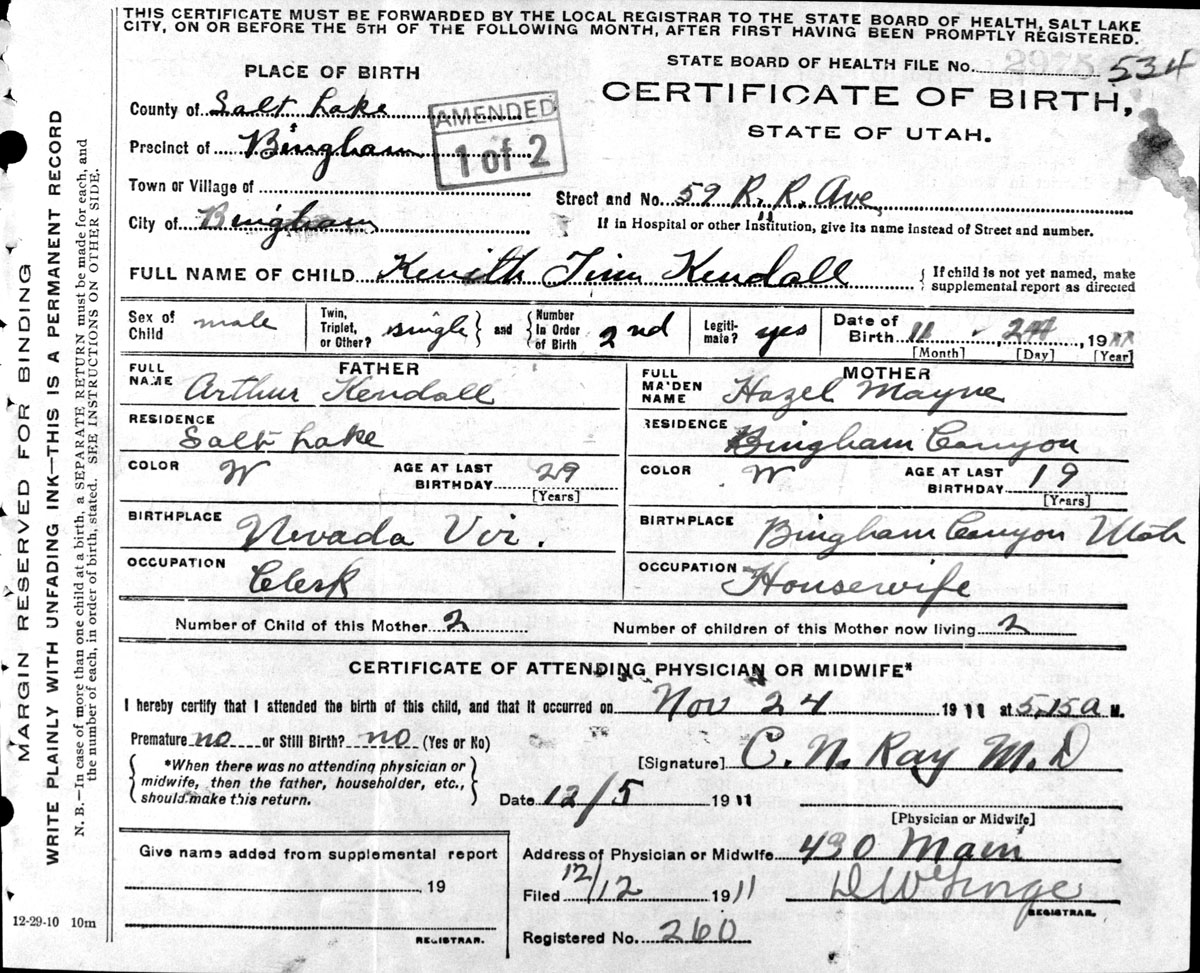 THIS CERTIFICATE MUST BE FORWARDED BY THE LOCAL REGISTRAR TO THE STATE BOARD OF HEALTH, SALT LAKE
CITY, ON OR BEFORE THE 5TH OF THE FOLLOWING MONTH, AFTER FIRST HAVING BEEN PROMPTLY REGISTERED.
MARGIN RESERVED FOR BINDING
WRITE PLAINLY WITH UNFADING INK—THIS IS A PERMANENT RECORD
N. B.—In case of more than one child at a birth, a SEPARATE RETURN must be made for each, and
the number of each, in order of birth, stated. SEE INSTRUCTIONS ON OTHER SIDE.
PLACE OF BIRTH
STATE BOARD OF HEALTH FILE No. 534
County of Salt Lake
AMENDED
1 of 2
CERTIFICATE OF BIRTH,
STATE OF UTAH.
Precinct of Bingham
Town or Village of
Street and No. 59 R. R. Ave
City of Bingham
If in Hospital or other Institution, give its name instead of Street and number.
FULL NAME OF CHILD Kenith Tinn Kendall
If child is not yet named, make
supplemental report as directed
Sex of Child male
Twin, Triplet, or Other? single and Number In Order of Birth 2nd
Legitimate? yes
Date of Birth 11 - 24 19
[Month] [Day] [Year]
FATHER
FULL NAME Arthur Kendall
RESIDENCE Salt Lake
COLOR W AGE AT LAST BIRTHDAY 29
[Years]
BIRTHPLACE Nevada Vir.
OCCUPATION Clerk
MOTHER
FULL MAIDEN NAME Hazel Mayne
RESIDENCE Bingham Canyon
COLOR W AGE AT LAST BIRTHDAY 19
[Years]
BIRTHPLACE Bingham Canyon Utah
OCCUPATION Housewife
Number of Child of this Mother 2 Number of children of this Mother now living 2
CERTIFICATE OF ATTENDING PHYSICIAN OR MIDWIFE*
I hereby certify that I attended the birth of this child, and that it occurred on Nov 24 1911 at 5,15 a M.
Premature no or Still Birth? no (Yes or No)
*When there was no attending physician or
midwife, then the father, householder, etc.,
should make this return.
[Signature] C. N. Ray M.D
Date 12/5 1911
[Physician or Midwife]
Give name added from supplemental report
19
REGISTRAR.
12-29-10 10m
Address of Physician or Midwife 430 Main
Filed 12/12 1911
REGISTRAR.
Registered No. 260